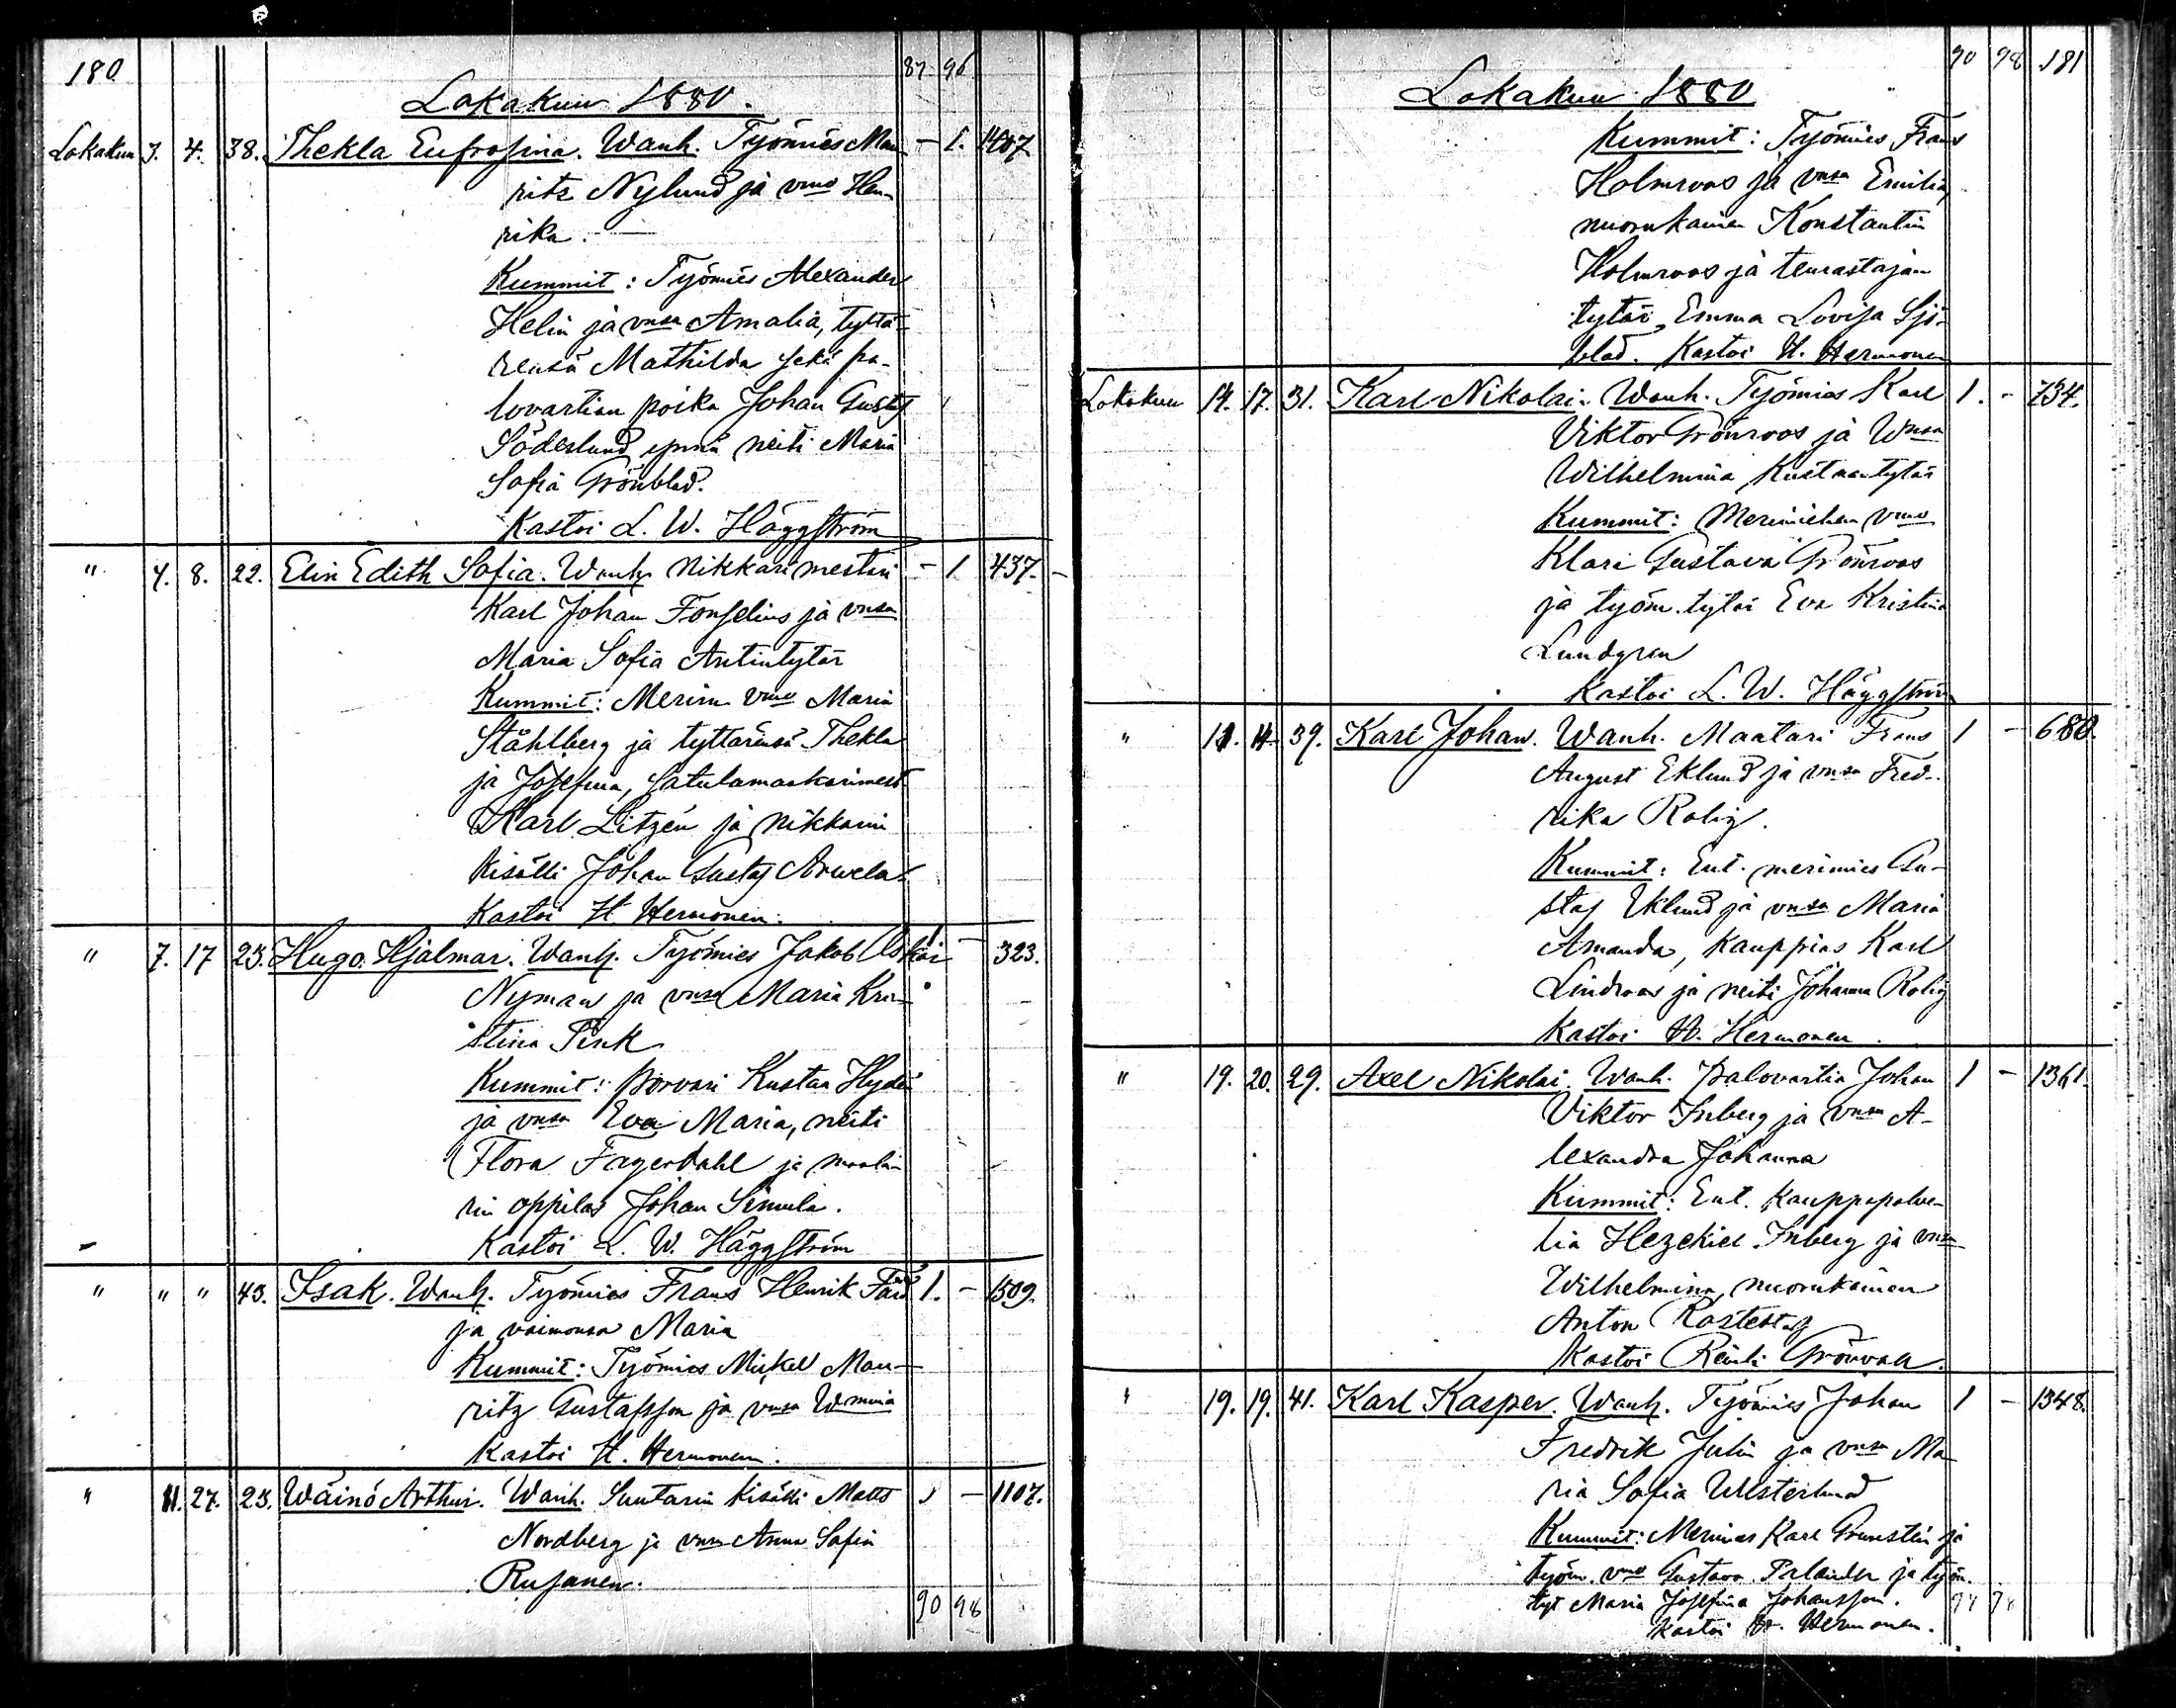 180
87 96
Lokakuu 1880.
Lokakuu 3. 4. 38. Thekla Eufrosina. Wanh. Työmies Mau- – 1. 1407
ritz Nylund ja vmo Hen-
rika.
Kummit: Työmies Alexander
Helin ja vnsa Amalia, tyttä-
rensä Mathilda sekä pa-
lovartian poika Johan Gustaf
Söderlund ynnä neiti Maria
Sofia Grönblad.
Kastoi L. W. Häggström
" 4. 8. 22. Elin Edith Sofia. Wanh. Nikkari mestari – 1 437.
Karl Johan Fonselius ja vnsa
Maria Sofia Antintytär
Kummit: Merim vmo Maria
Ståhlberg ja tyttärensä Thekla
ja Josefina, Satulamaakarimest.
Karl Litzén ja nikkarin
kisälli Johan Gustaf Arvela.
Kastoi H. Hermonen.
" 7. 17 25. Hugo Hjalmar. Wanh. Työmies Jakob Oskar 1 – 323.
Nyman ja vnsa Maria Kri-
stina Pink
Kummit: porvari Kustaa Hydén
ja vnsa Eva Maria, neiti
Flora Fagerdahl ja maala-
rin oppilas Johan Simula.
Kastoi L. W. Häggström
" " " 43. Isak. Wanh. Työmies Frans Henrik 1. – 1509.
ja vaimonsa Maria
Kummit: Työmies Mickel Mau-
ritz Gustafsson ja vnsa Wmina
Kastoi H. Hermonen.
" 11. 27. 25. Wäinö Arthur. Wanh. Suutarin kisälli Matts 1 – 1107.
Nordberg ja vnsa Anna Sofia
Rusanen.
90 98
90 98 181
Lokakuu 1880
Kummit: Työmies Frans
Holmroos ja vnsa Emilia,
nuorukainen Konstantin
Holmroos ja teurastajan
tytär Emma Lovisa Sjö-
blad. Kastoi H. Hermonen
Lokakuu 14. 17. 31. Karl Nikolai. Wanh. Työmies Karl 1. – 734.
Viktor Grönroos ja Wnsa
Wilhelmina Kustaantytär
Kummit: Merimiehen vmo
Klara Gustava Grönroos
ja työm. tytär Eva Kristina
Lundgren
Kastoi L. W. Häggström
" 11. 14 39. Karl Johan. Wanh. Maatari Frans 1 – 680.
August Eklund ja vnsa Fred-
rika Rolig.
Kummit: Ent. merimies Gu-
staf Eklund ja vnsa Maria
Amanda, kauppias Karl
Lindroos ja neiti Johanna Rolig
Kastoi H. Hermonen.
" 19. 20. 29. Axel Nikolai. Wanh. Palovartia Johan 1 – 1361.
Viktor Inberg ja vnsa A-
lexandra Johanna
Kummit: Ent. kauppapalve-
lia Hezekiel Inberg ja vnsa
Wilhelmina, nuorukainen
Anton
Kastoi
" 19. 19. 41. Karl Kasper. Wanh. Työmies Johan 1 – 1348.
Fredrik Julin ja vnsa Ma-
ria Sofia Westerlund
Kummit: Merimies Karl Grunstén ja
työm. vmo Gustava Palander ja työm.
tyt Maria Josefina Johansson.
Kastoi H. Hermonen.